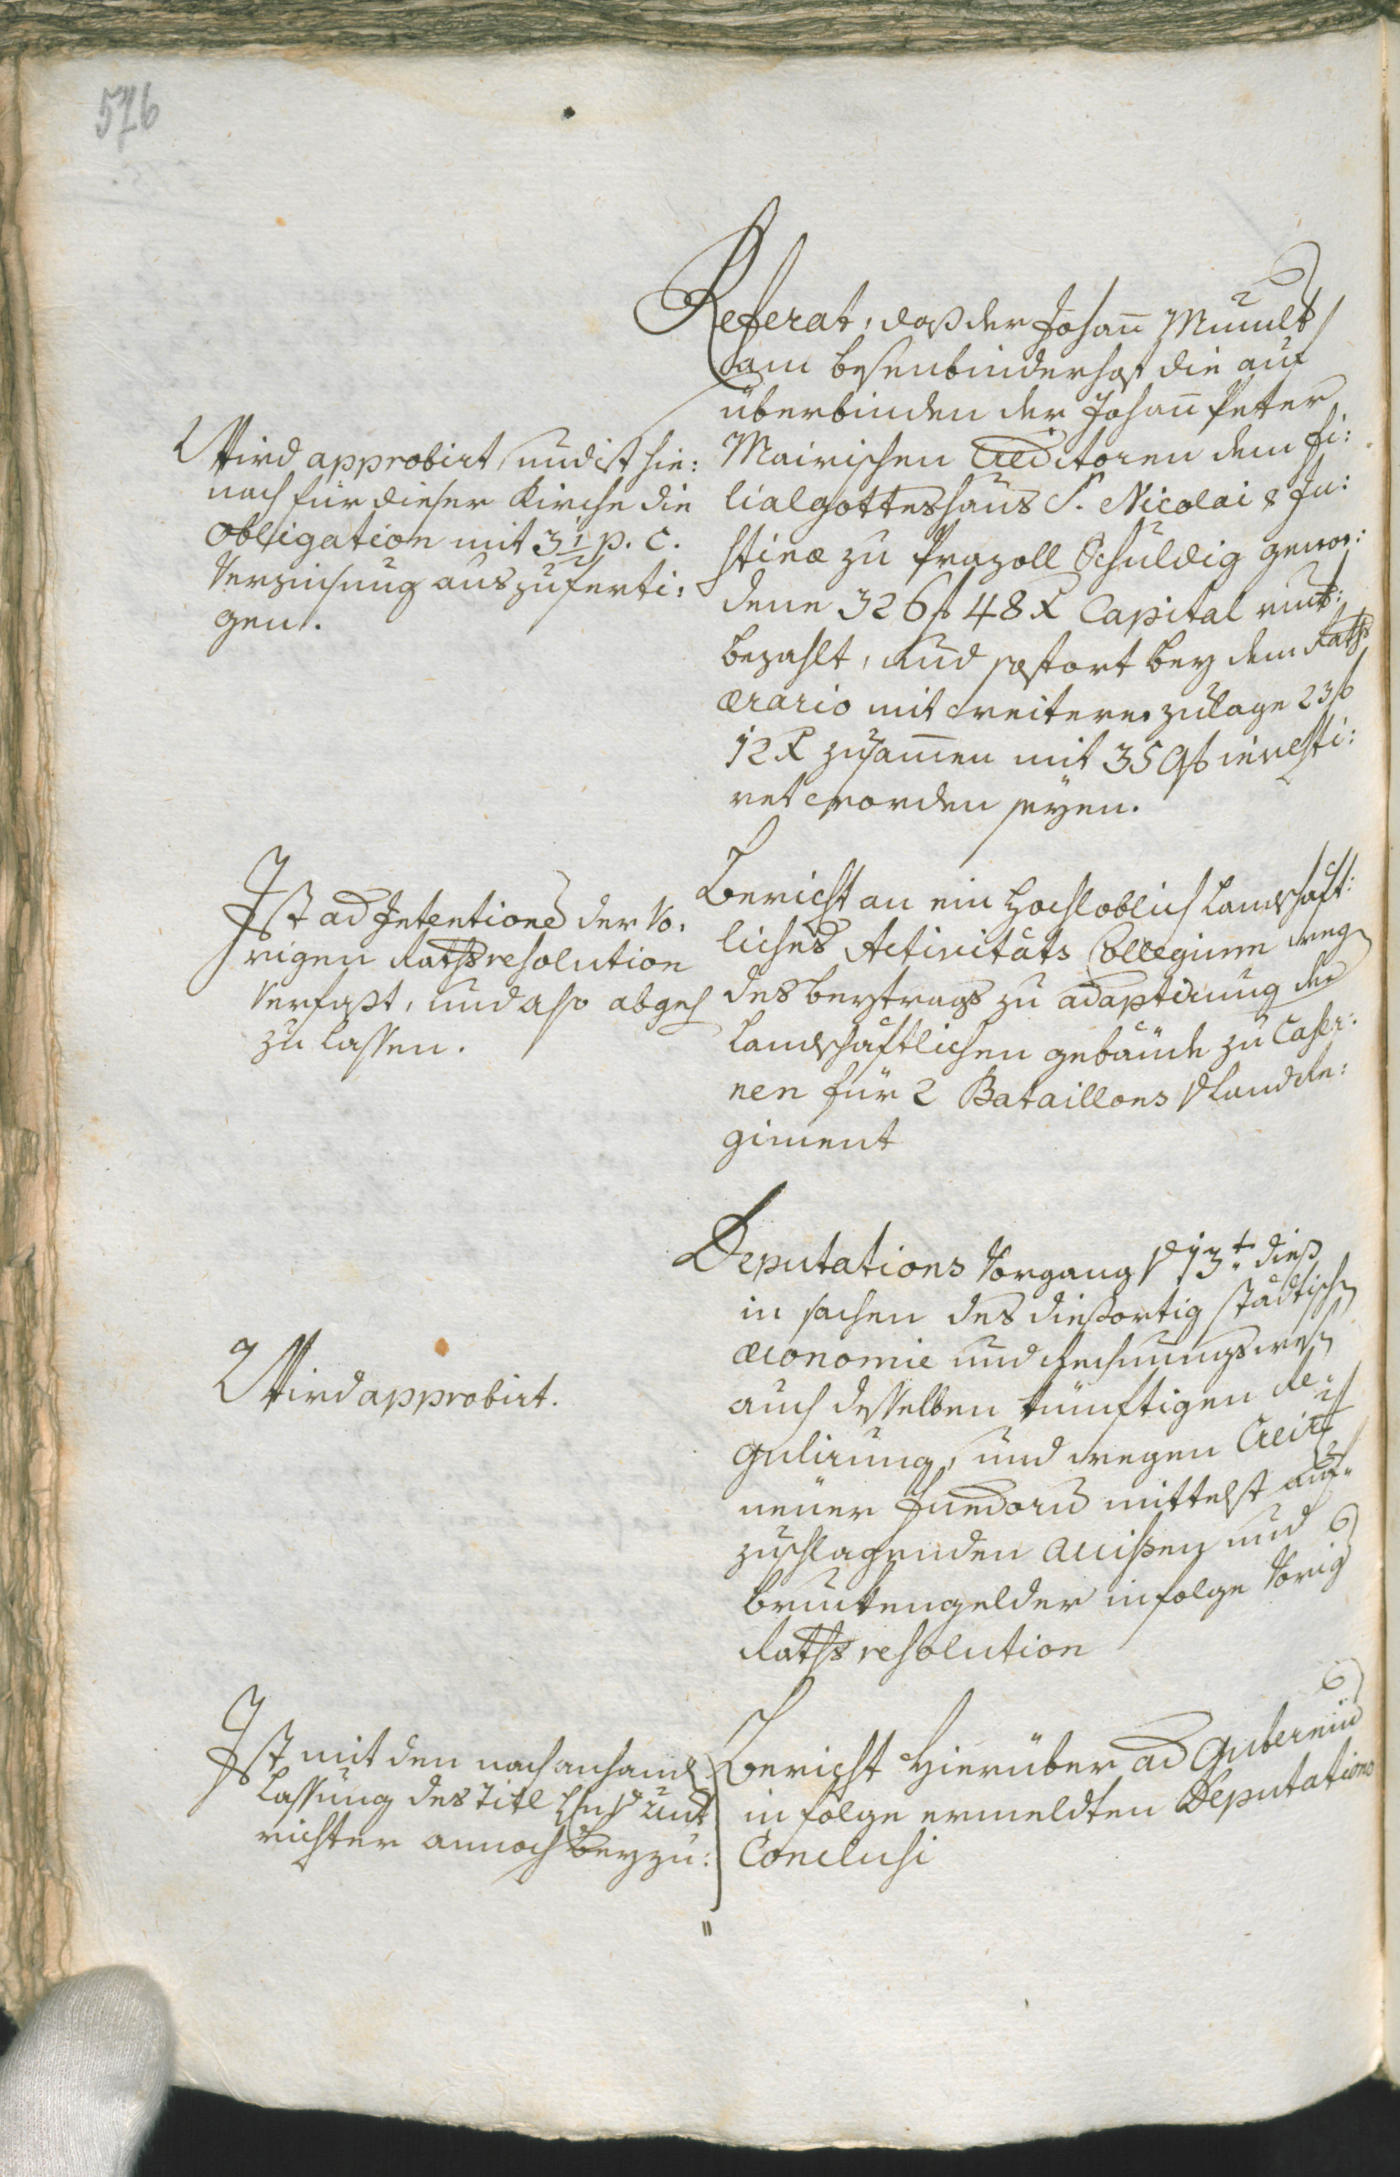 576
Referat, daß der Johann
am besenbinderhof die auf
überbinden der Johann Peter
Mairischen Creditoren dem fi:
lialgotteshaus S. Nicolai & Ju:
stinæ zu Prazoll schuldig gewor:
dene 326 f 48 x Capital
bezahlt, und sofort bey dem Raths
ærario mit weiterer zulage 23 f
12 x zusamen mit 350 f investi:
ret worden seyen.
Wird approbirt, und ist hie:
nach für dieser Kirche die
obligation mit 3 1/2 p. c.
Verzinsung auszuferti:
gen.
Bericht an ein Hochloblich Landschaft:
liches Activitäts Collegium weg
des beytrags zu adaptirung der
Landschaftlichen gebäude zu Caser:
nen für 2 Bataillons Landre:
giment
Ist ad Intentione der Vo:
rigen Rathsresolution
Verfaßt, und also abgeh
zu lassen.
Deputations Vorgang 13t. dieß
in sachen des dießortig städtisch
œconomie und Rechnungswes
auch desselben künftigen Re:
gulirung, und wegen
neuer Fundoru mittelst auf:
zuschlagenden und
bruckengelder in folge Vorig
Raths resolution
Wird approbirt.
Bericht hierüber ad Guberniu
in folge ermeldten Deputations
Conclusi
Ist mit den nach anhand
lassung des Titl
richter annoch beyzu: